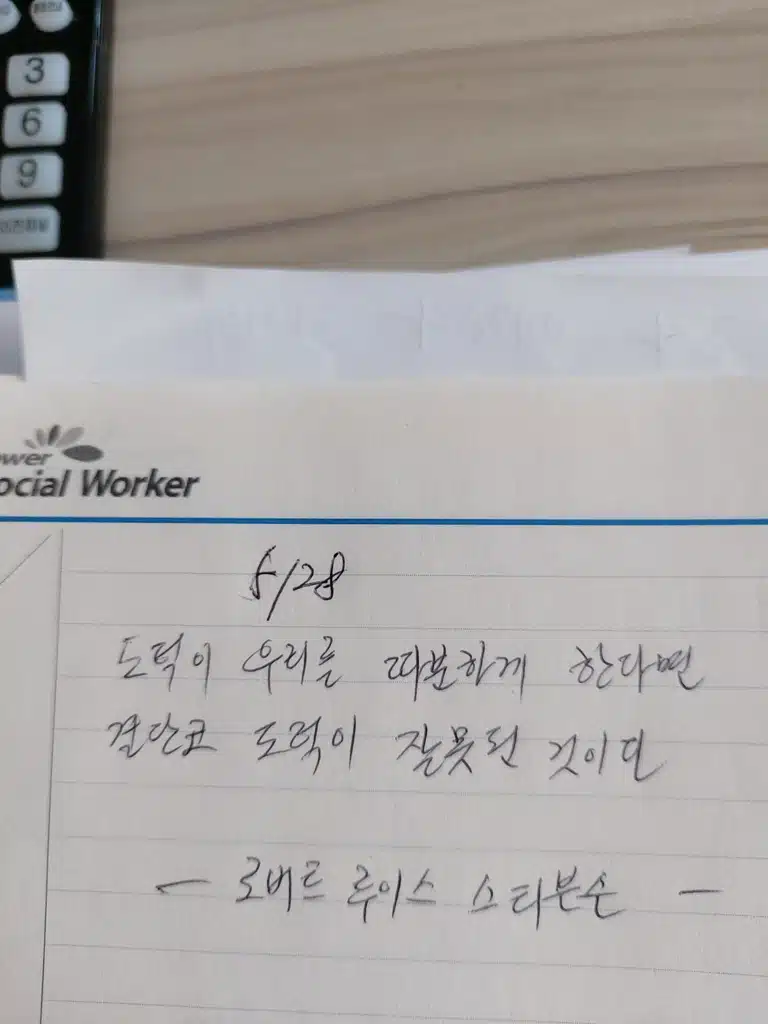 3
6
9
wer
ocial Worker
5/28
도덕이 우리를 따분하게 한다면
결단코 도덕이 잘못된 것이다
- 로버트 루이스 스티븐슨 -